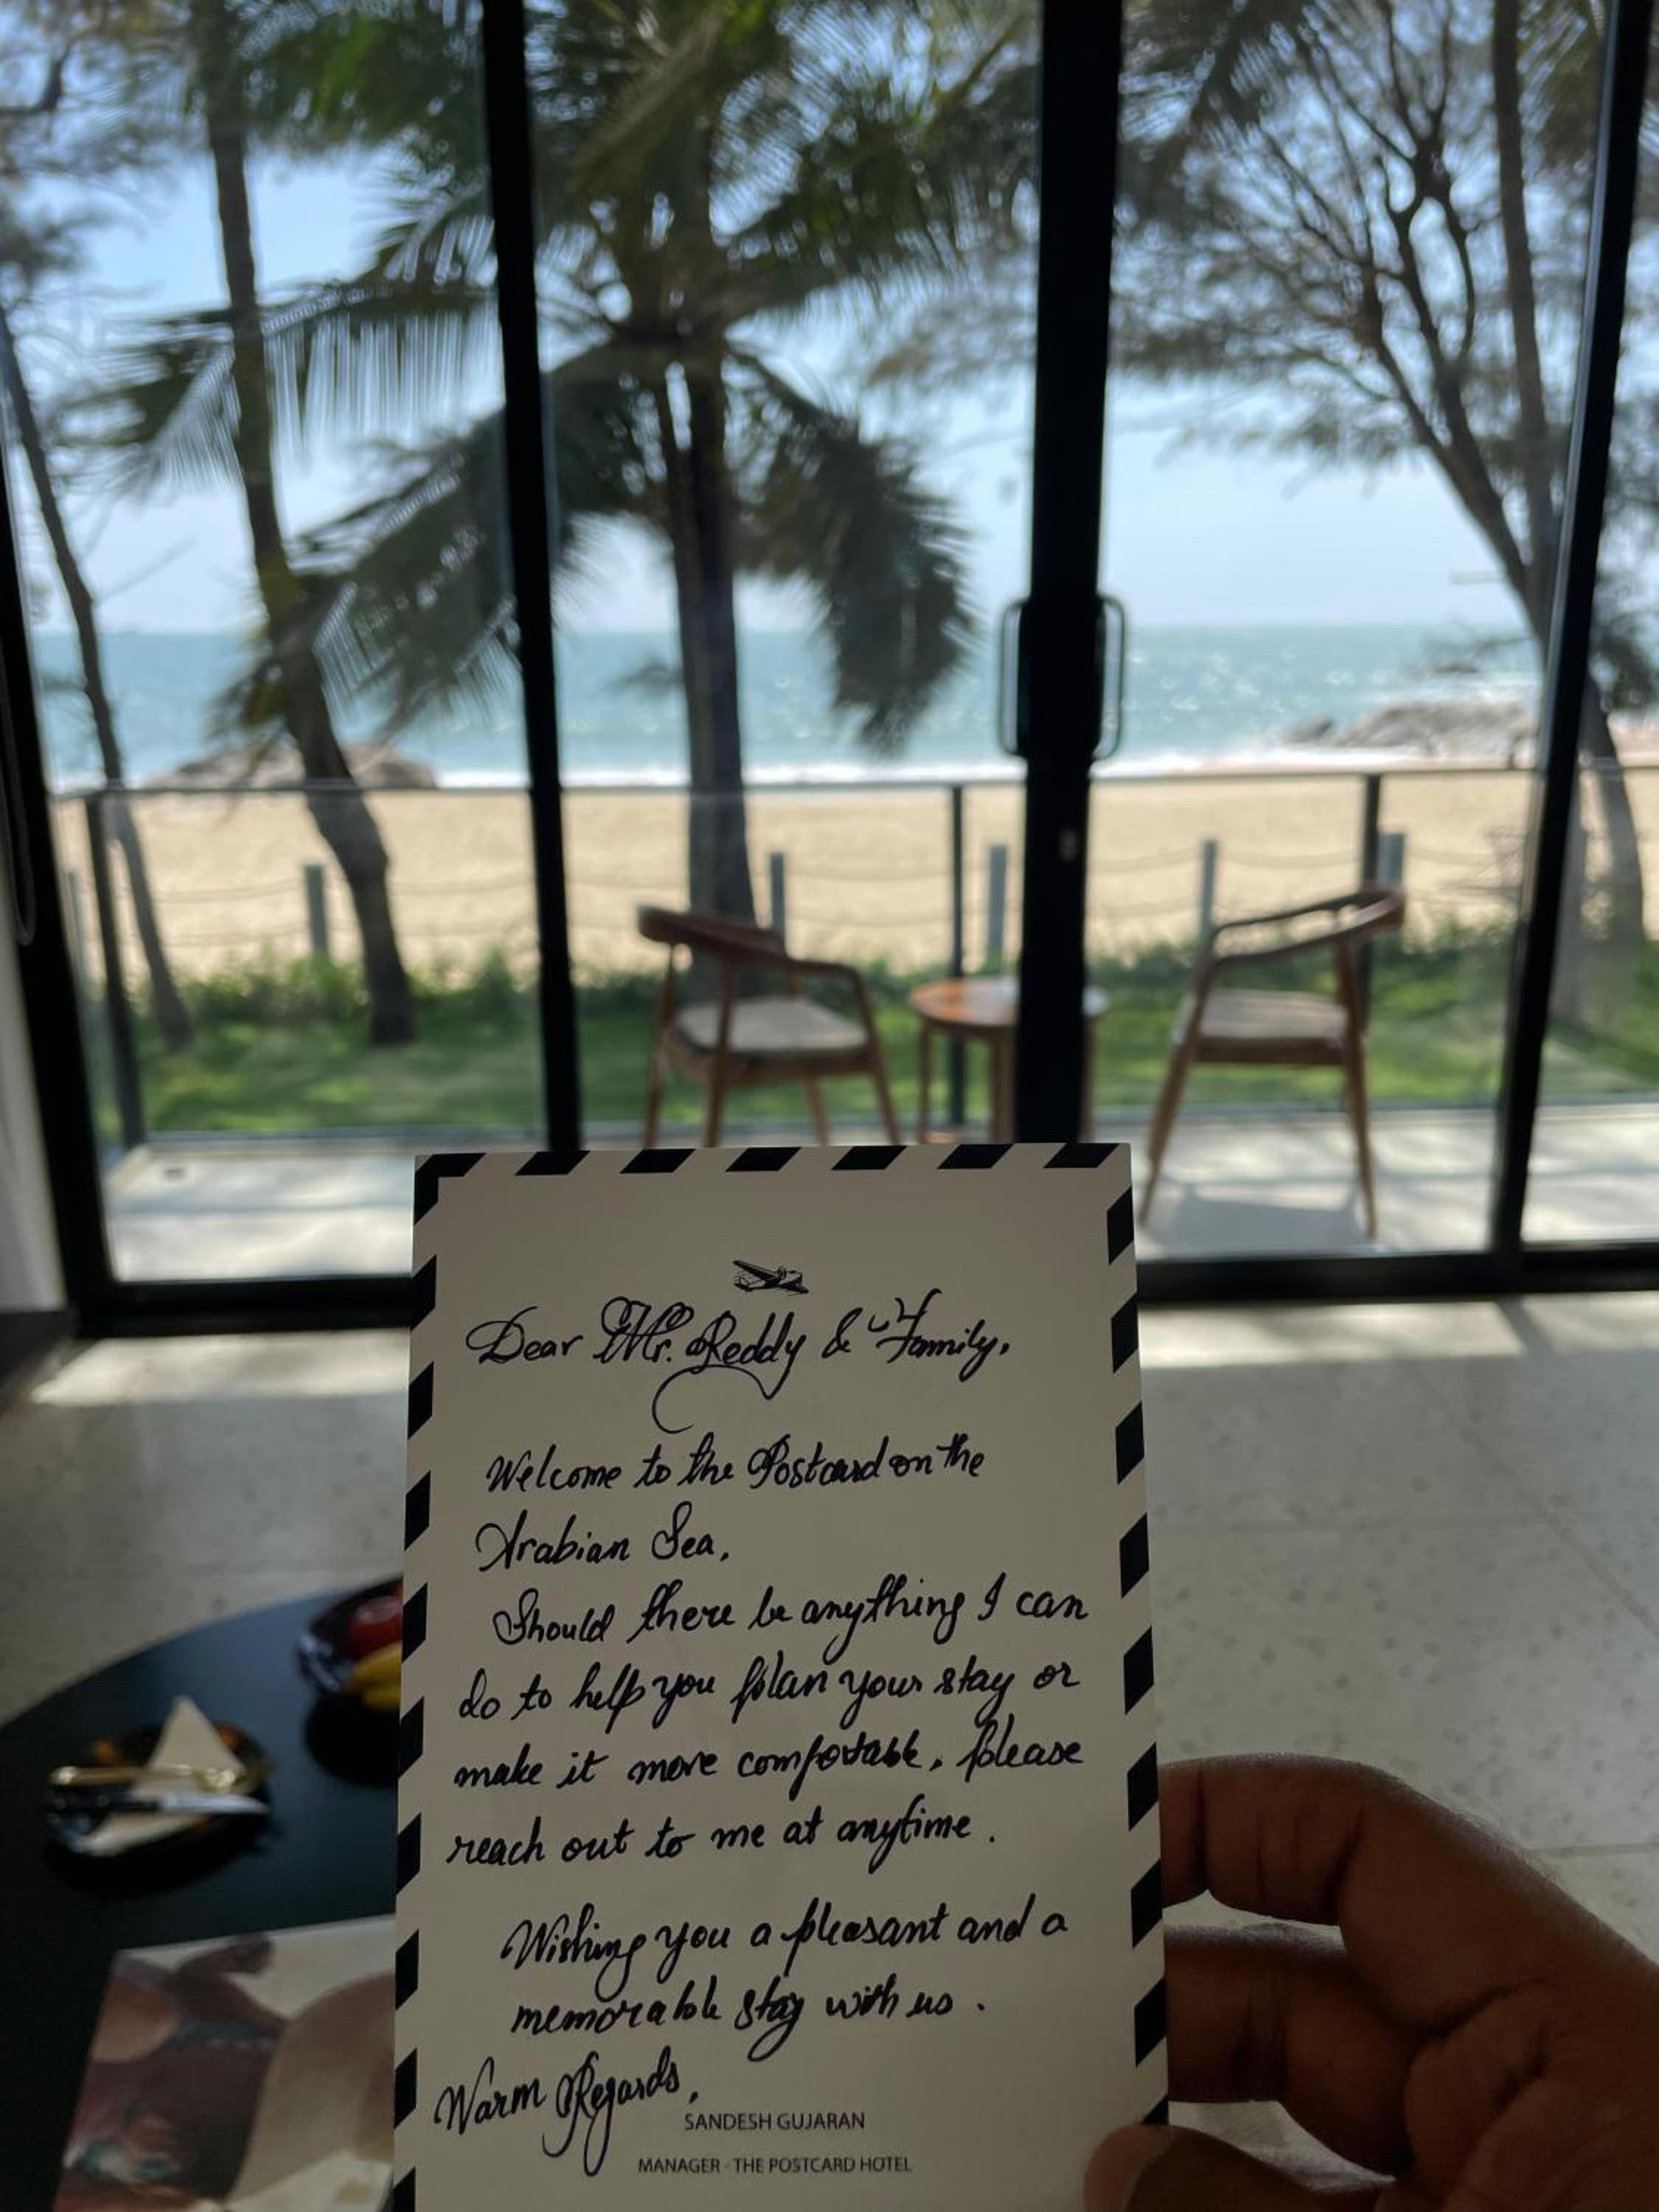 Dear Mr. Reddy & Family,
Welcome to the Postcard on the
Arabian Sea.
Should there be anything I can
do to help you plan your stay or
make it more comfortable, please
reach out to me at anytime.
Wishing you a pleasant and a
memorable stay with us.
Warm Regards,
SANDESH GUJARAN
MANAGER - THE POSTCARD HOTEL